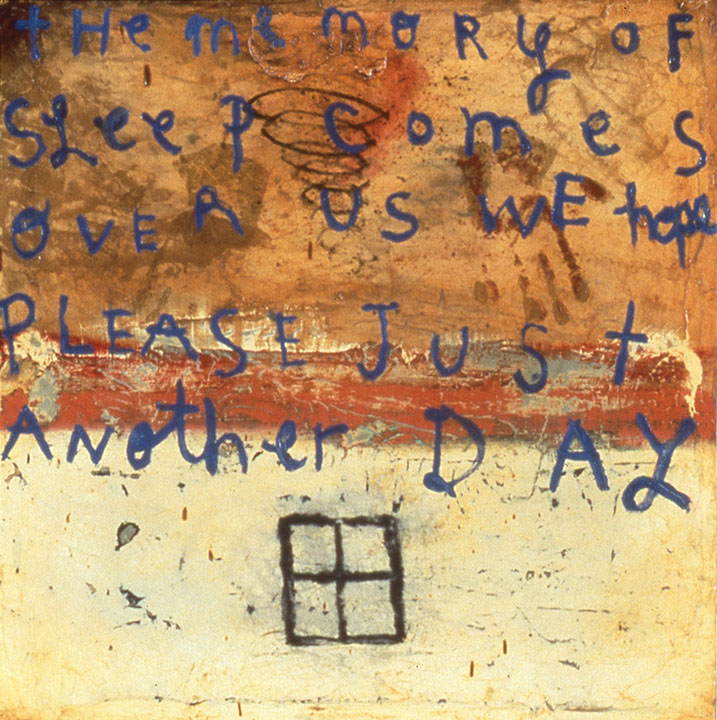 tHe memoRy oF
SLeep comes
OVER US WE hope
PLEASE JUSt
ANother DAY